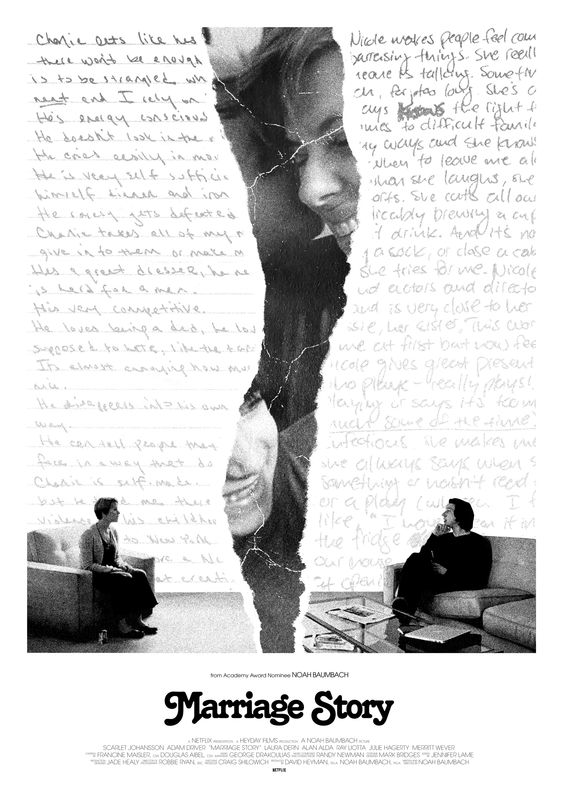 Charlie eats like he's
there won't be enough
is to be strangled wh
neat and I rely on
He's energy conscious
He doesn't look in the
He cries easily in mov
He is very self suffici
himself dinner and iron
He rarely gets defeated
Charlie takes all of my
give in to them or make m
He's a great dresser, he ne
is hard for a man.
He's very competitive.
He loves being a dad, he lov
supposed to hate, like the
It's almost annoying how
nice.
He disappears into his own
way.
He can tell people they
face in a way that do
Charlie is self-made.
but he told me there
his childho
to New York
Nicole makes people feel com
barrassing things. She reall
is talking. Sometim
long. She's a
ays knows the right t
to difficult famil
ways and she knows
when to leave me al
when she laughs, she
She cuts all ou
icably brewing a cup
t drink. And it's no
a sock, or close a cab
she tries for me. Nicole
actors and directo
and is very close to her
her sister. This
me at first but now
icole gives great present
who plays - really plays!
playing or says it's too
some of the time.
infectious. She makes me
she always says when s
something or hasn't read
or a play (
like, "I
the fridge
our house
open
from Academy Award Nominee NOAH BAUMBACH
Marriage Story
A NETFLIX PRESENTATION A HEYDAY FILMS PRODUCTION A NOAH BAUMBACH PICTURE
SCARLETT JOHANSSON ADAM DRIVER "MARRIAGE STORY" LAURA DERN ALAN ALDA RAY LIOTTA JULIE HAGERTY MERRITT WEVER
FRANCINE MAISLER, DOUGLAS AIBEL, GEORGE DRAKOULIAS RANDY NEWMAN MARK BRIDGES JENNIFER LAME
JADE HEALY ROBBIE RYAN, CRAIG SHILOWICH DAVID HEYMAN, NOAH BAUMBACH, NOAH BAUMBACH
NETFLIX